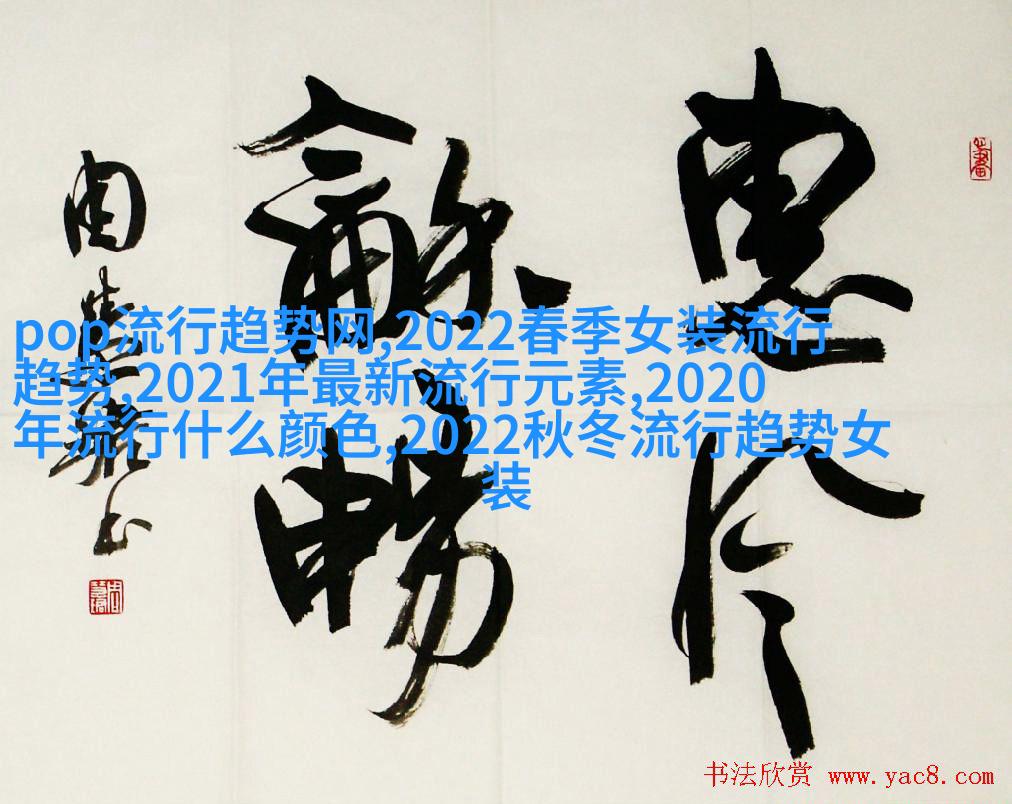 惠風
龢暢
pop流行趋势网,2022春季女装流行
趋势,2021年最新流行元素,2020
年流行什么颜色,2022秋冬流行趋势女
装
书法欣赏 www.yac8.com